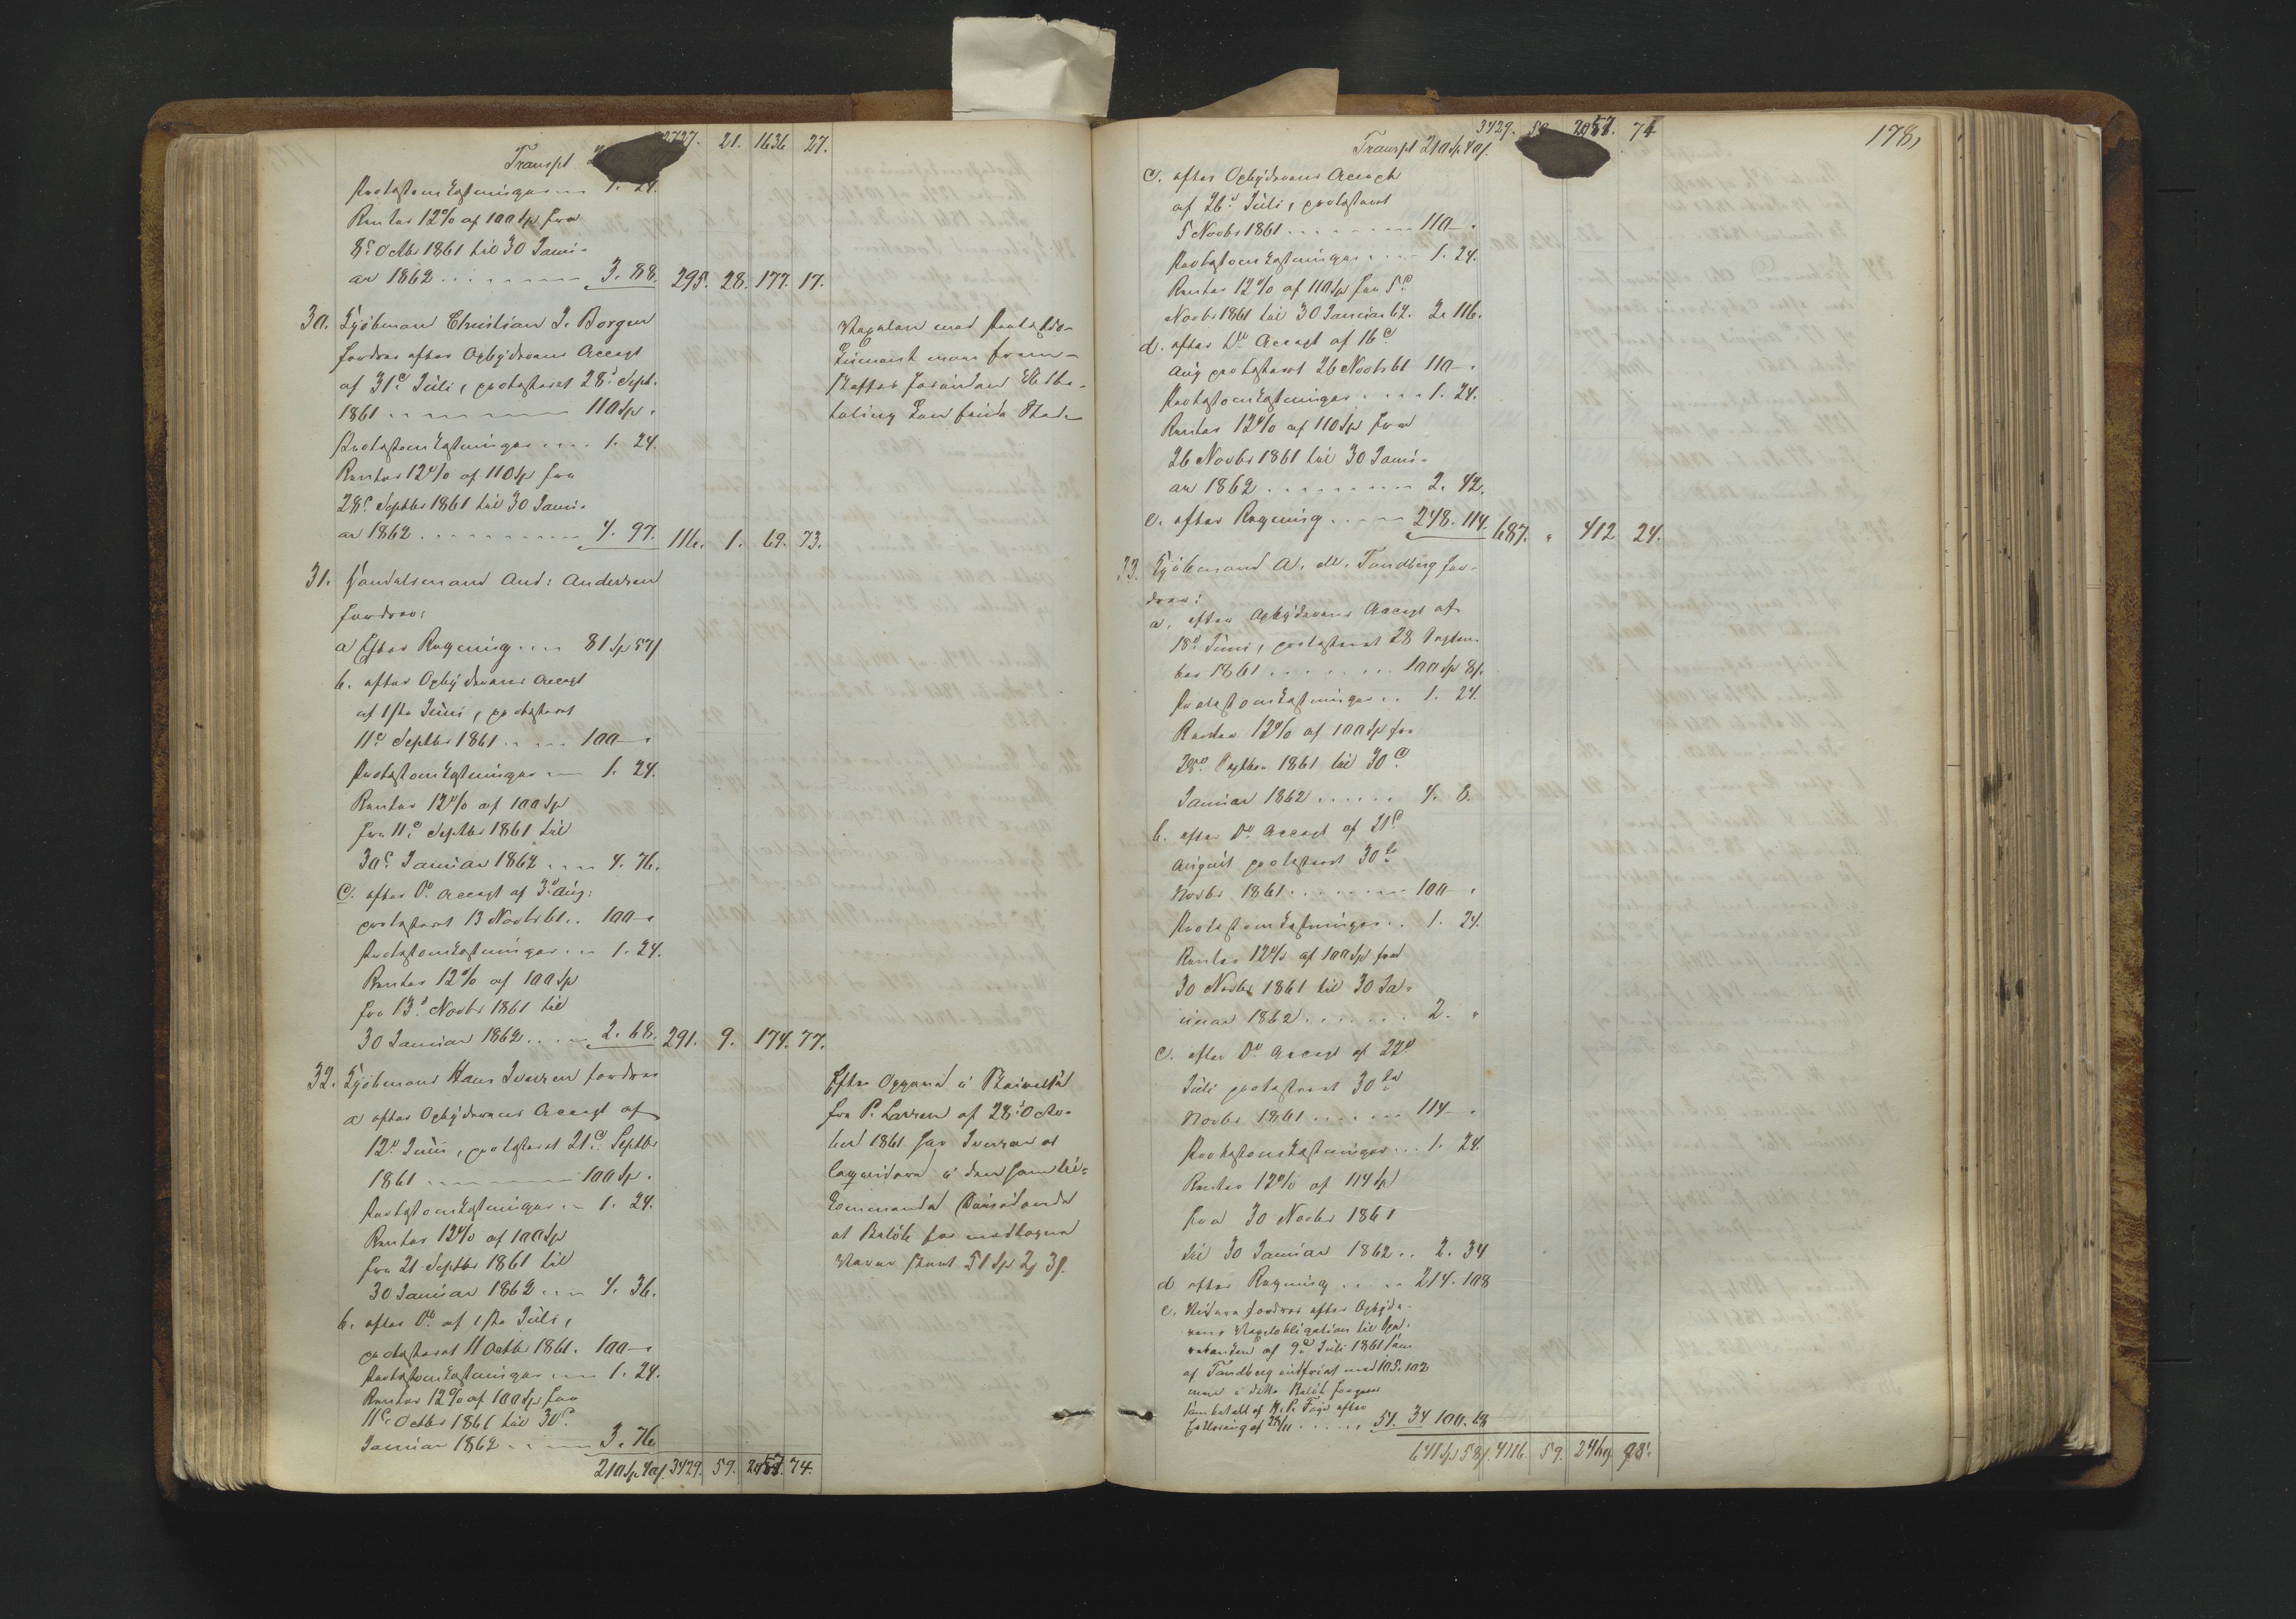 Transpt 2727. 21. 1636 27.
Protestomkostninger 1. 24.
Renter 12% af 100 Sp fra
8de Octbr 1861 til 30 Janu-
ar 1862 3. 88. 295. 28. 177. 17.
30. Kjøbmand Christian J. Borgen
fordrer efter Opbyderens Accept
af 31te Juli, protesteret 28de Sept.
1861 110 Sp.
Protestomkostninger 1. 24.
Renter 12% af 110 Sp fra
28de Septbr 1861 til 30 Janu-
ar 1862 4. 97. 116. 1. 69. 73.
Vexelen med Protestdo-
kument maa frem-
skaffes forinden Udbe-
taling kan finde Sted.
31. Handelsmand And: Andersen
fordrer:
a Efter Regning 81 Sp 57 s
b. efter Opbyderens Accept
af 1ste Juni, protesteret
11te Septbr 1861 100 - "
Protestomkostninger 1. 24.
Renter 12% af 100 Sp
fra 11te Septbr 1861 til
30te Januar 1862 4. 76.
c. efter Do Accept af 3de Aug:
protesteret 13 Novbr 61 100 - "
Protestomkostninger 1. 24.
Renter 12% af 100 Sp
fra 13de Novbr 1861 til
30 Januar 1862 2. 68. 291. 9. 174. 77.
32. Kjøbmand Hans Iversen fordrer
a efter Opbyderens Accept af
12te Juni, protesteret 21de Septbr
1861 100 Sp.
Protestomkostninger 1. 24.
Renter 12% af 100 Sp
fra 21 Septbr 1861 til
30 Januar 1862 4. 36.
b. efter Do af 1ste Juli,
protesteret 11 Octbr 1861. 100 - "
Protestomkostninger 1. 24.
Renter 12% af 100 Sp fra
11te Octbr 1861 til 30te
Januar 1862 3. 76
210 Sp 40 s. 3429. 59. 2057. 74.
Efter Opgave i Skrivelse
fra P. Larsen af 28de Octo-
ber 1861 har Iversen at
den ham til-
kommende
et Beløb for modtagne
Varer stort 51 Sp 2 3 s.
178,
3429. 59 2057. 74
Transpt 210 Sp 40 s.
c. efter Opbyderens Accept
af 26de Juli, protesteret
5 Novbr 1861 110 - "
Protestomkostninger 1. 24.
Renter 12% af 110 Sp fra 5te
Novbr 1861 til 30 Januar 62. 2. 116.
d. efter Do Accept af 16de
Aug protesteret 26 Novbr 61 110 - "
Protestomkostninger 1. 24.
Renter 12% af 110 Sp fra
26 Novbr 1861 til 30 Janu-
ar 1862 2. 42.
e. efter Regning 248. 114. 687. " 412 24.
33. Kjøbmand A. M. Tandberg for-
drer:
a. efter Opbyderens Accept af
18de Juni, protesteret 28 Septem-
ber 1861 100 Sp 8 s.
Protestomkostninger 1. 24.
Renter 12% af 100 Sp fra
28de Septbr 1861 til 30te
Januar 1862 4. 8.
b. efter Do Accept af 21de
August protesteret 30te
Novbr 1861 100 - "
Protestomkostninger 1. 24.
Renter 12% af 100 Sp fra
30 Novbr 1861 til 30 Ja-
nuar 1862 2. "
c. efter Do Accept af 22de
Juli protesteret 30te
Novbr 1861 114 - "
Protestomkostninger 1. 24.
Renter 12% af 114 Sp
fra 30 Novbr 1861
til 30 Januar 1862 2. 34
d efter Regning 214. 108
e. Videre fordres efter Opbyde-
rens til
af 9de Juli 1861 som
af Tandberg indfriet med 105. 102
men i dette Beløb
som betalt af efter
51. 34 100. 68
641 Sp 58 s. 4116. 59. 2469. 98.